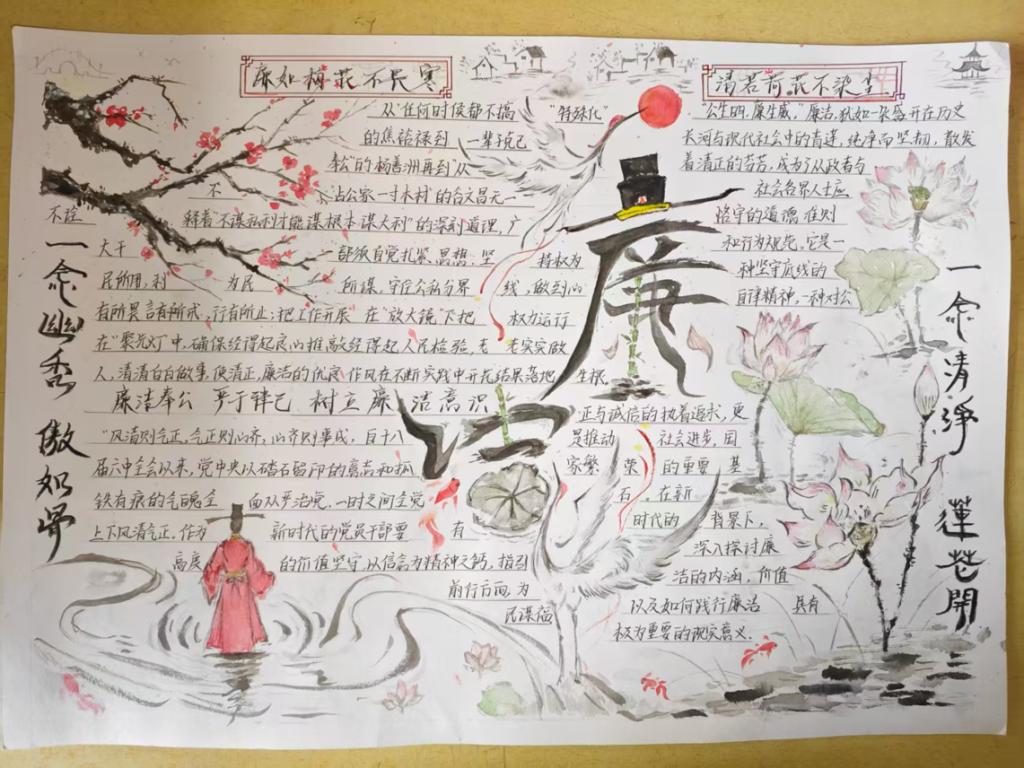 廉如梅花不畏寒
从“任何时候都不搞“特殊化”
的焦裕禄到一辈子说己
松”的杨善洲再到“从
不占公家一寸木材”的谷文昌无一
不诠释着“不谋私利才能谋根本谋大利”的深刻道理,广
大干部须自觉扎紧思想,坚持权为
民所用,利为民所谋,守住公私分界线,做到心
有所畏言有所戒,行有所止;把工作开展”在“放大镜”下把权力运行
在“聚光灯”中,确保经得起良心推敲经得起人民检验,老老实实做
人,清清白白做事,使清正,廉洁的优良作风在不断实践中开花结果落地生根.
廉洁奉公 严于律己 树立廉洁高识
“风清则气正,气正则心齐,心齐则事成,自十八
届六中全会以来,党中央以踏石留印的意志和抓
铁有痕的气魄全面从严治党,一时之间全党
上下风清气正,作为新时代的党员干部要有
高度的价值坚守,以信念为精神之钙,指引
前行方向,为
民谋福
一念幽香傲如骨
廉洁
清若荷花不染尘
“公生明,廉生威,”廉洁,犹如一朵盛开在历史
长河与现代社会中的青莲,纯净而坚韧,散发
着清正的芬芳,成为了从政者与
社会各界人士应
恪守的道德准则
和行为规范,它是一
种坚守底线的
自律精神,一种对公
正与诚信的执着追求,更
是推动社会进步,国
家繁荣的重要基
石,在新
时代的背景下,
深入探讨廉
洁的内涵,价值
以及如何践行廉洁具有
极为重要的现实意义.
一念清净蓮花開